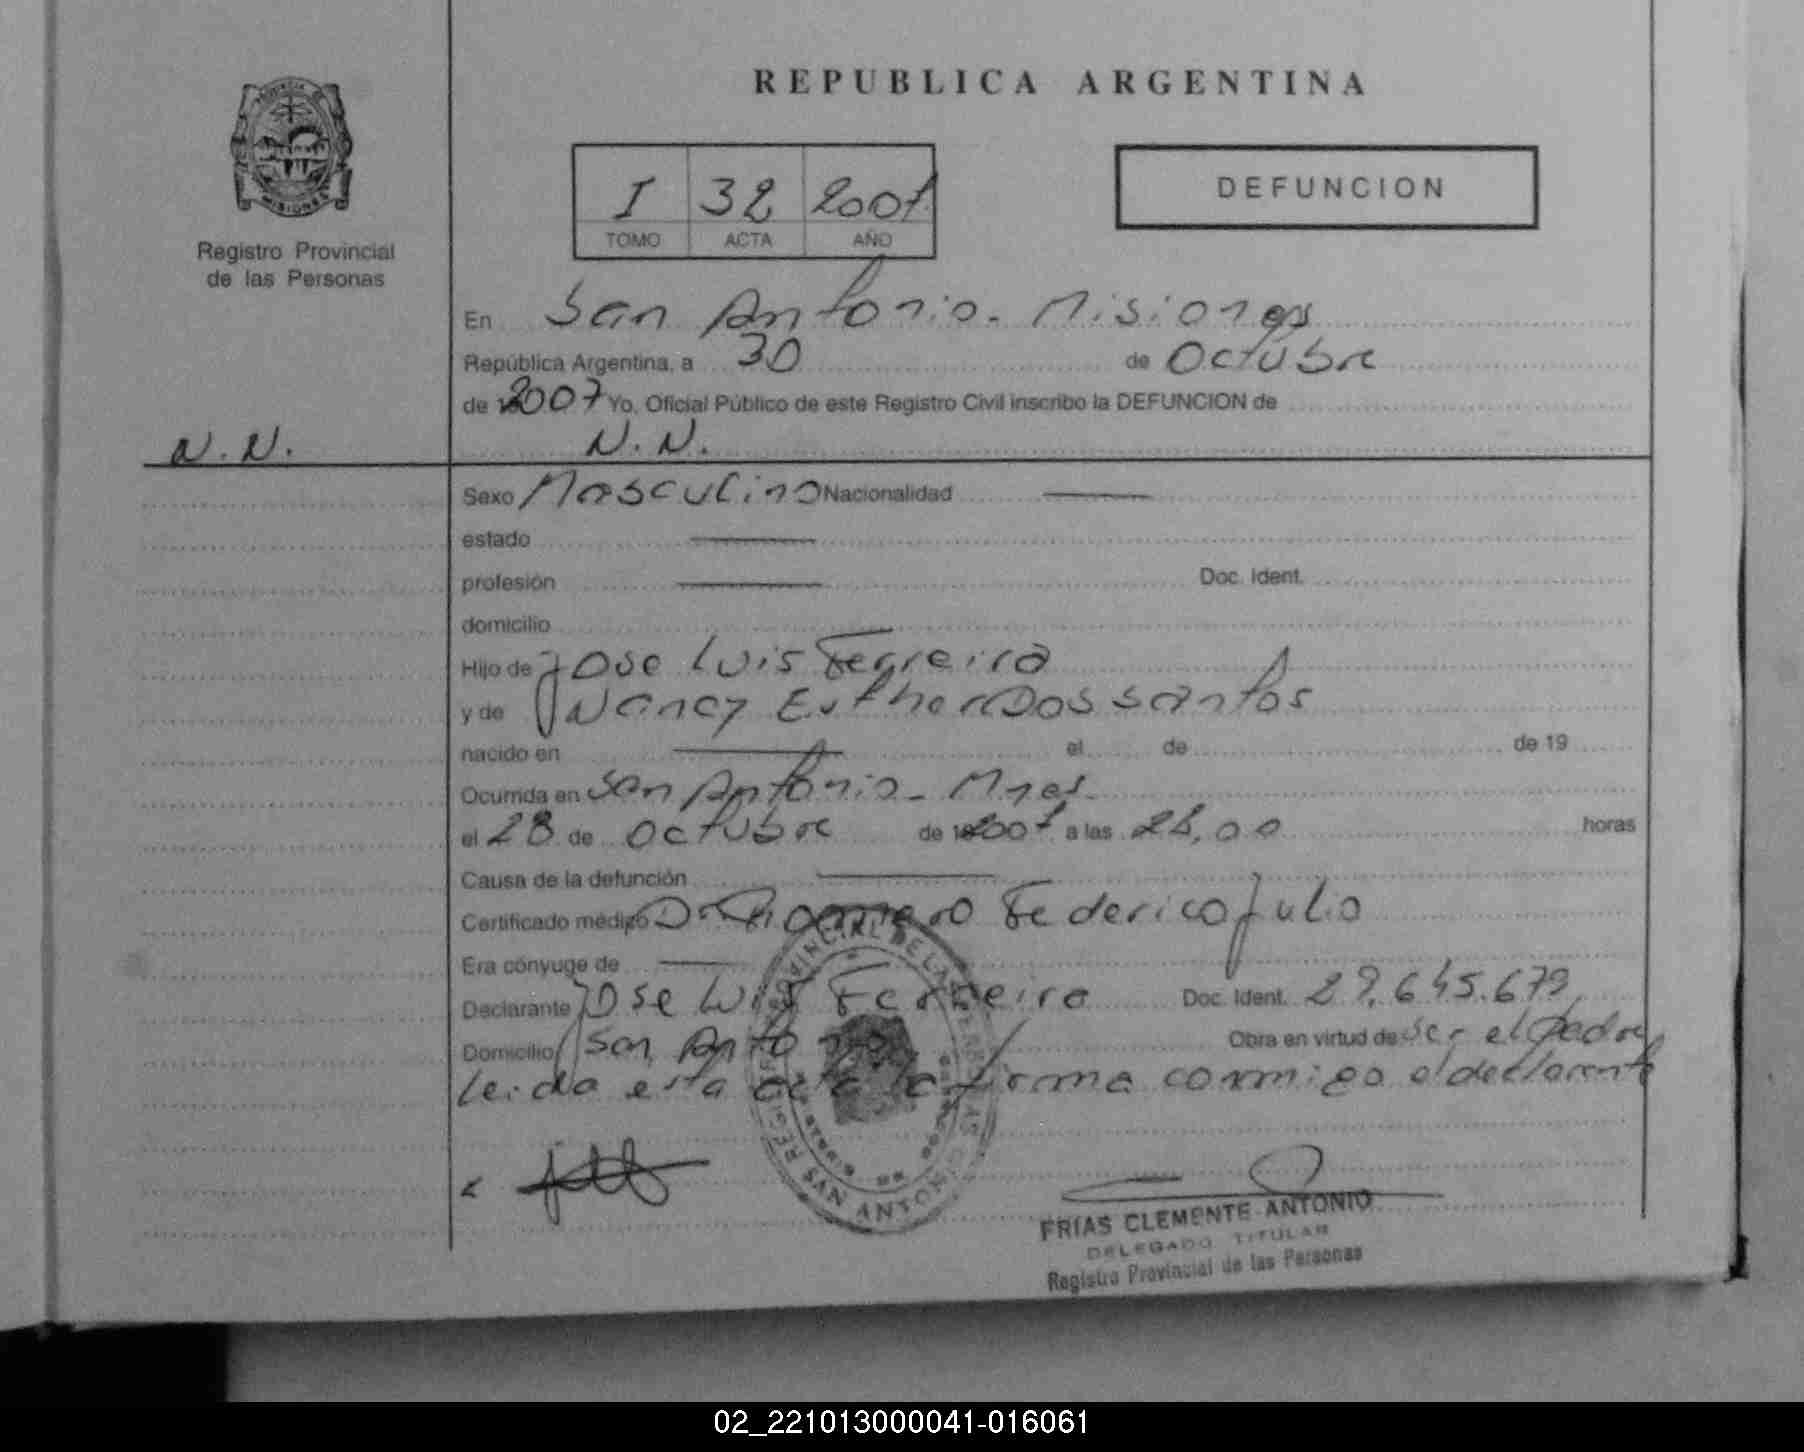 REPUBLICA ARGENTINA
PROVINCIA DE
MISIONES
Registro Provincial
de las Personas
I 32 2007
TOMO ACTA AÑO
DEFUNCION
En San Antonio - Misiones
República Argentina, a 30 de Octubre
de 2007 Yo, Oficial Público de este Registro Civil inscribo la DEFUNCION de
N.N. N.N.
Sexo Masculino Nacionalidad
estado
profesión Doc. Ident.
domicilio
Hijo de Jose Luis Ferreira
y de Nancy Esther Dos santos
nacido en el de de 19
Ocurrida en San Antonio - Mnes.
el 28 de Octubre de 2007 a las horas
Causa de la defunción
Certificado médico Dr. Federico Julio
Era cónyuge de
Declarante Jose Luis Ferreira Doc. Ident. 29.645.679
Domicilio San Antonio Obra en virtud de ser el Padre
Leida esta acta la firma conmigo el declarante
REGISTRO PROVINCIAL DE LAS PERSONAS
SAN ANTONIO
FRIAS CLEMENTE ANTONIO
DELEGADO TITULAR
Registro Provincial de las Personas
02_221013000041-016061